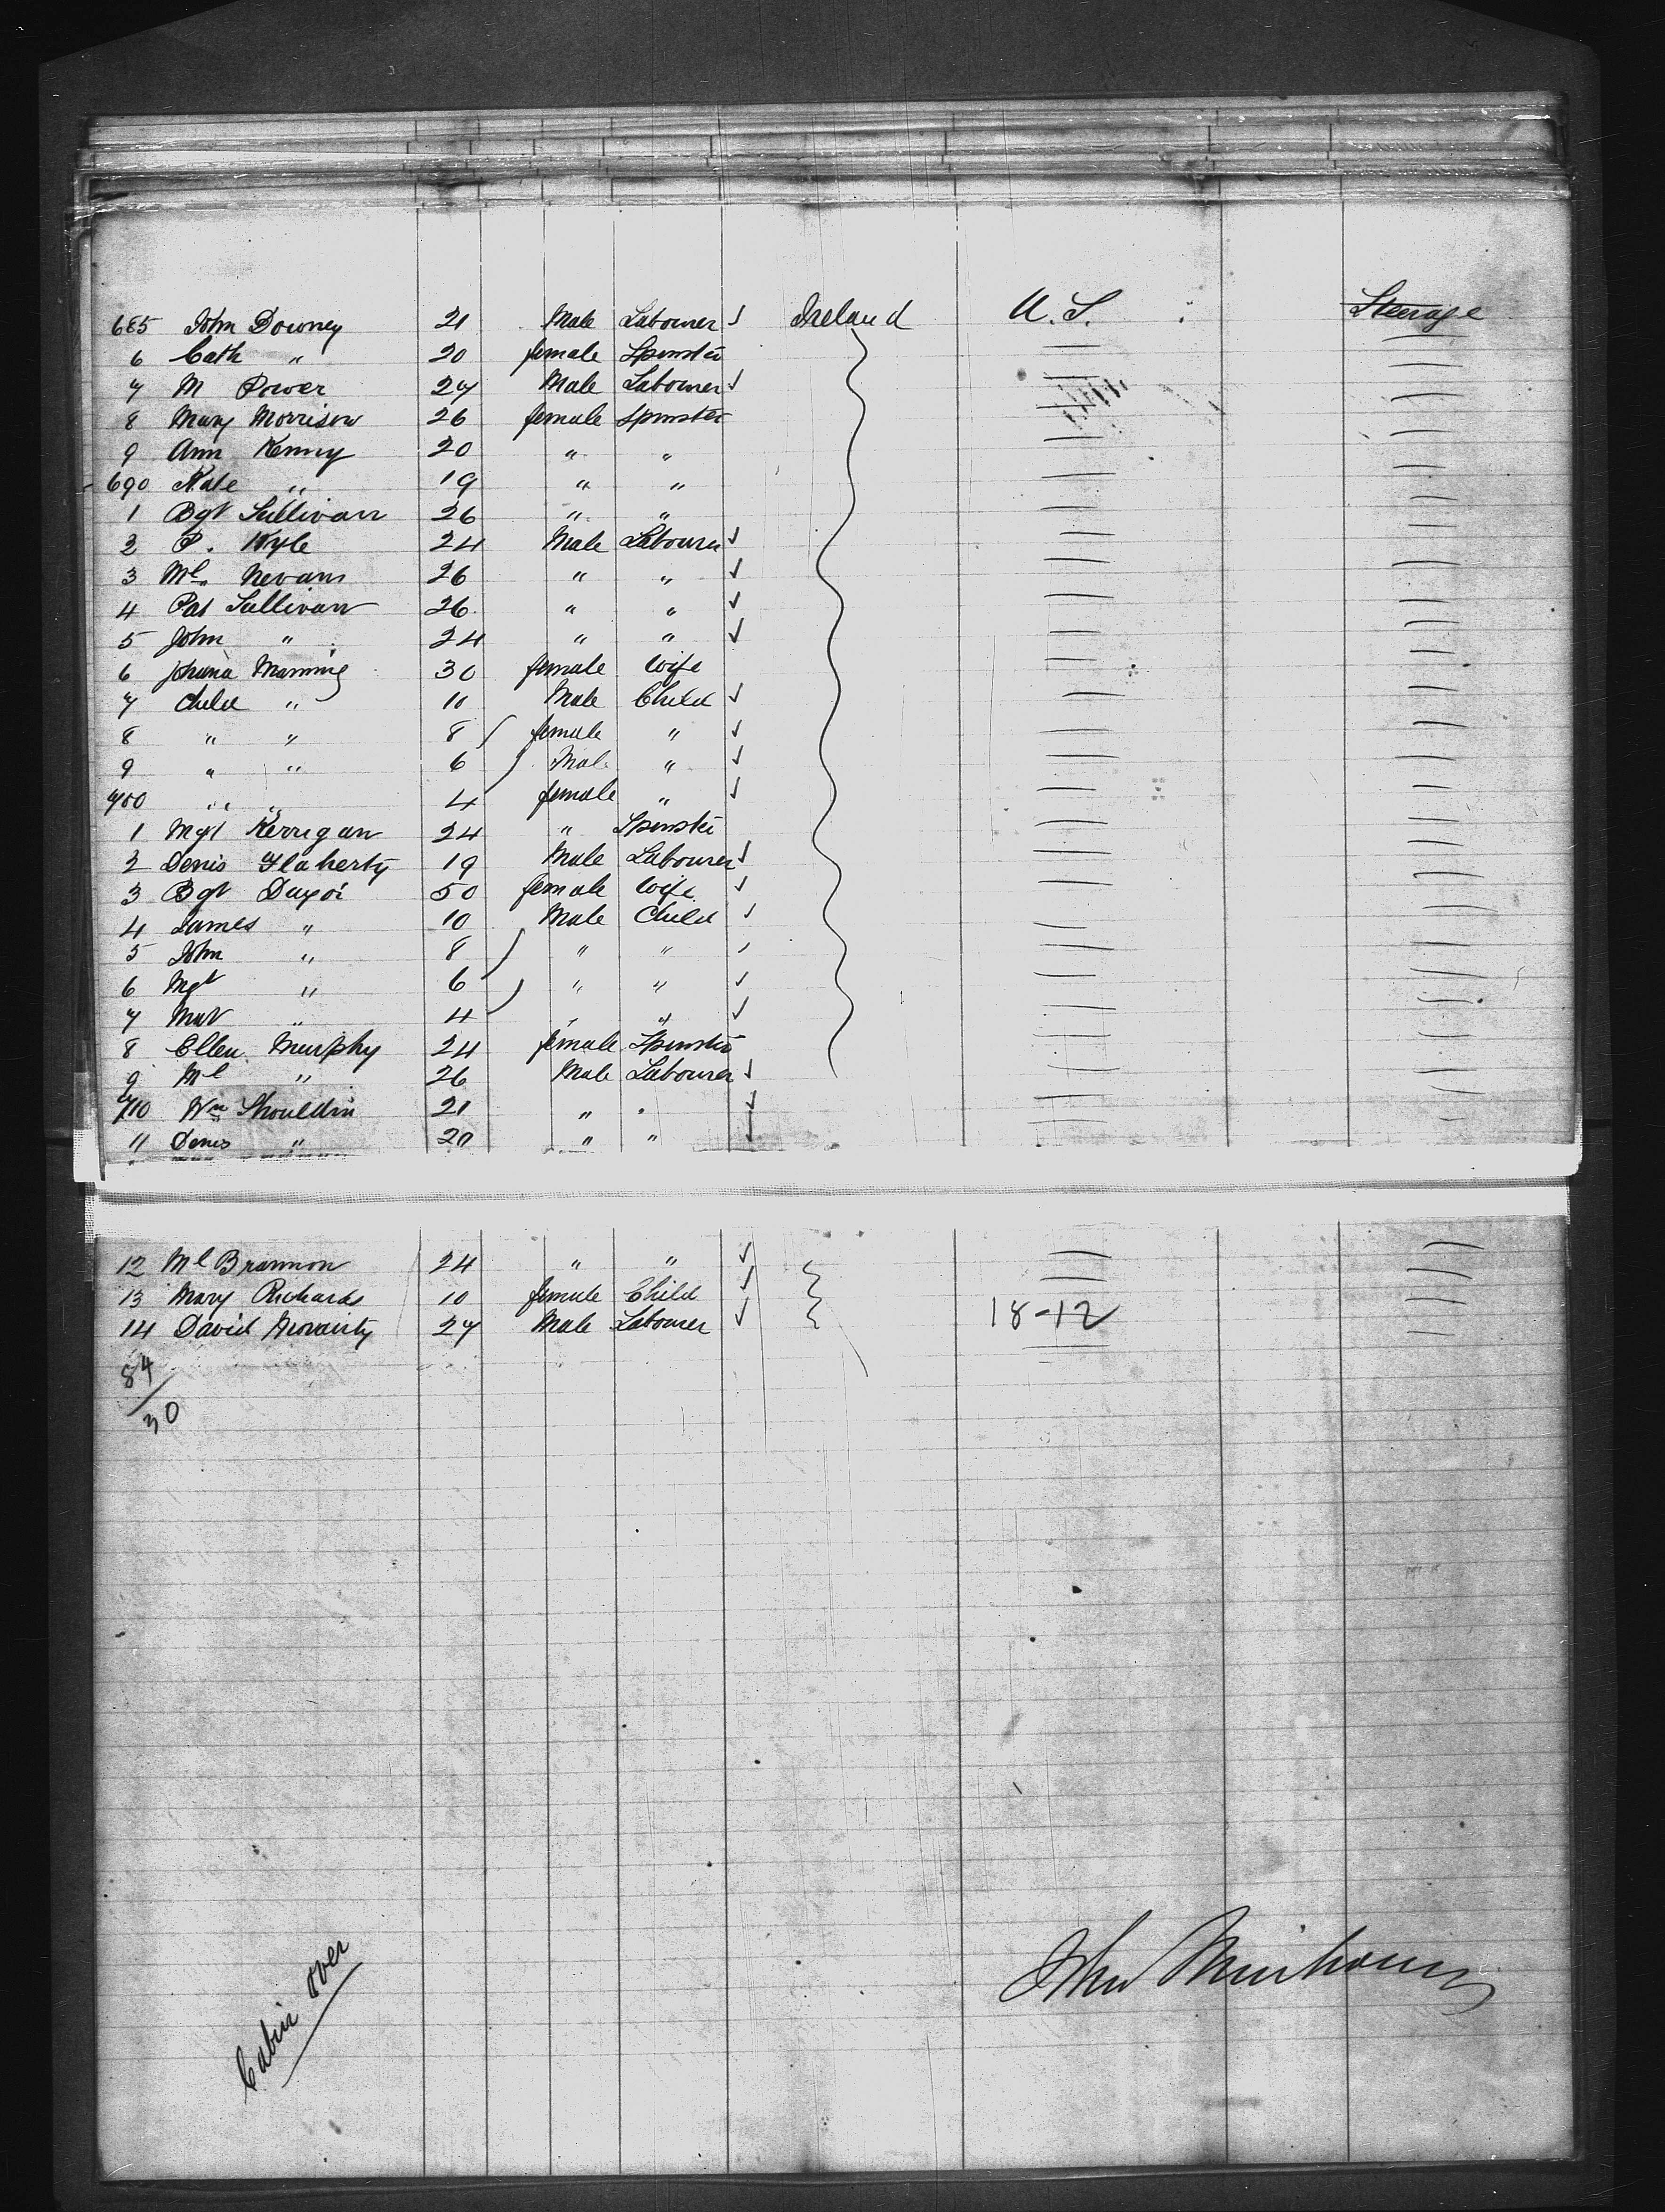 685 John Downey 21 Male Labourer ✓ Ireland U.S. Steerage
6 Cath " 20 female Spinster
7 M Power 27 Male Labourer ✓
8 Mary Morrison 26 female Spinster
9 Ann Kenny 20 " "
690 Kate " 19 " "
1 Bgt Sullivan 26 " "
2 P. Kyle 24 Male Labourer ✓
3 Ml Nevans 26 " " ✓
4 Pat Sullivan 26 " " ✓
5 John " 24 " " ✓
6 Johana Manning 30 female Wife
7 Child " 10 Male Child ✓
8 " " 8 female " ✓
9 " " 6 Male " ✓
700 " " 4 female " ✓
1 Mgt Kerrigan 24 " Spinster
2 Denis Flaherty 19 Male Labourer ✓
3 Bgt 50 female Wife ✓
4 James " 10 Male Child ✓
5 John " 8 " " ✓
6 Mgt " 6 " " ✓
7 " 4 " " ✓
8 Ellen Murphy 24 female Spinster
9 Ml " 26 Male Labourer ✓
710 Wm Shouldin 21 " " ✓
11 Denis " 20 " " ✓
12 Ml Brannon 24 " " ✓
13 Mary Richards 10 female Child ✓
14 David Moriarity 27 Male Labourer ✓ 18-12
84/30
John
Cabin over